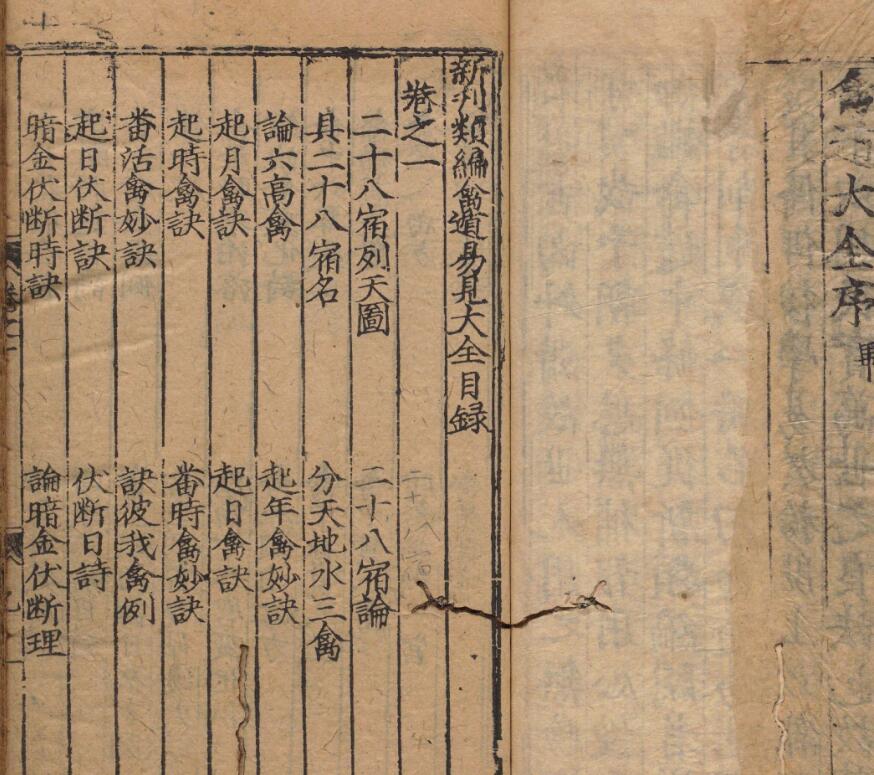 大全序
新刊類編禽遁易見大全目録
卷之一
二十八宿列天圖 二十八宿論
具二十八宿名 分天地水三禽
論六高禽 起年禽妙訣
起月禽訣 起日禽訣
起時禽訣 番時禽妙訣
番活禽妙訣 訣彼我禽例
起日伏断訣 伏断日詩
暗金伏断時訣 論暗金伏断理